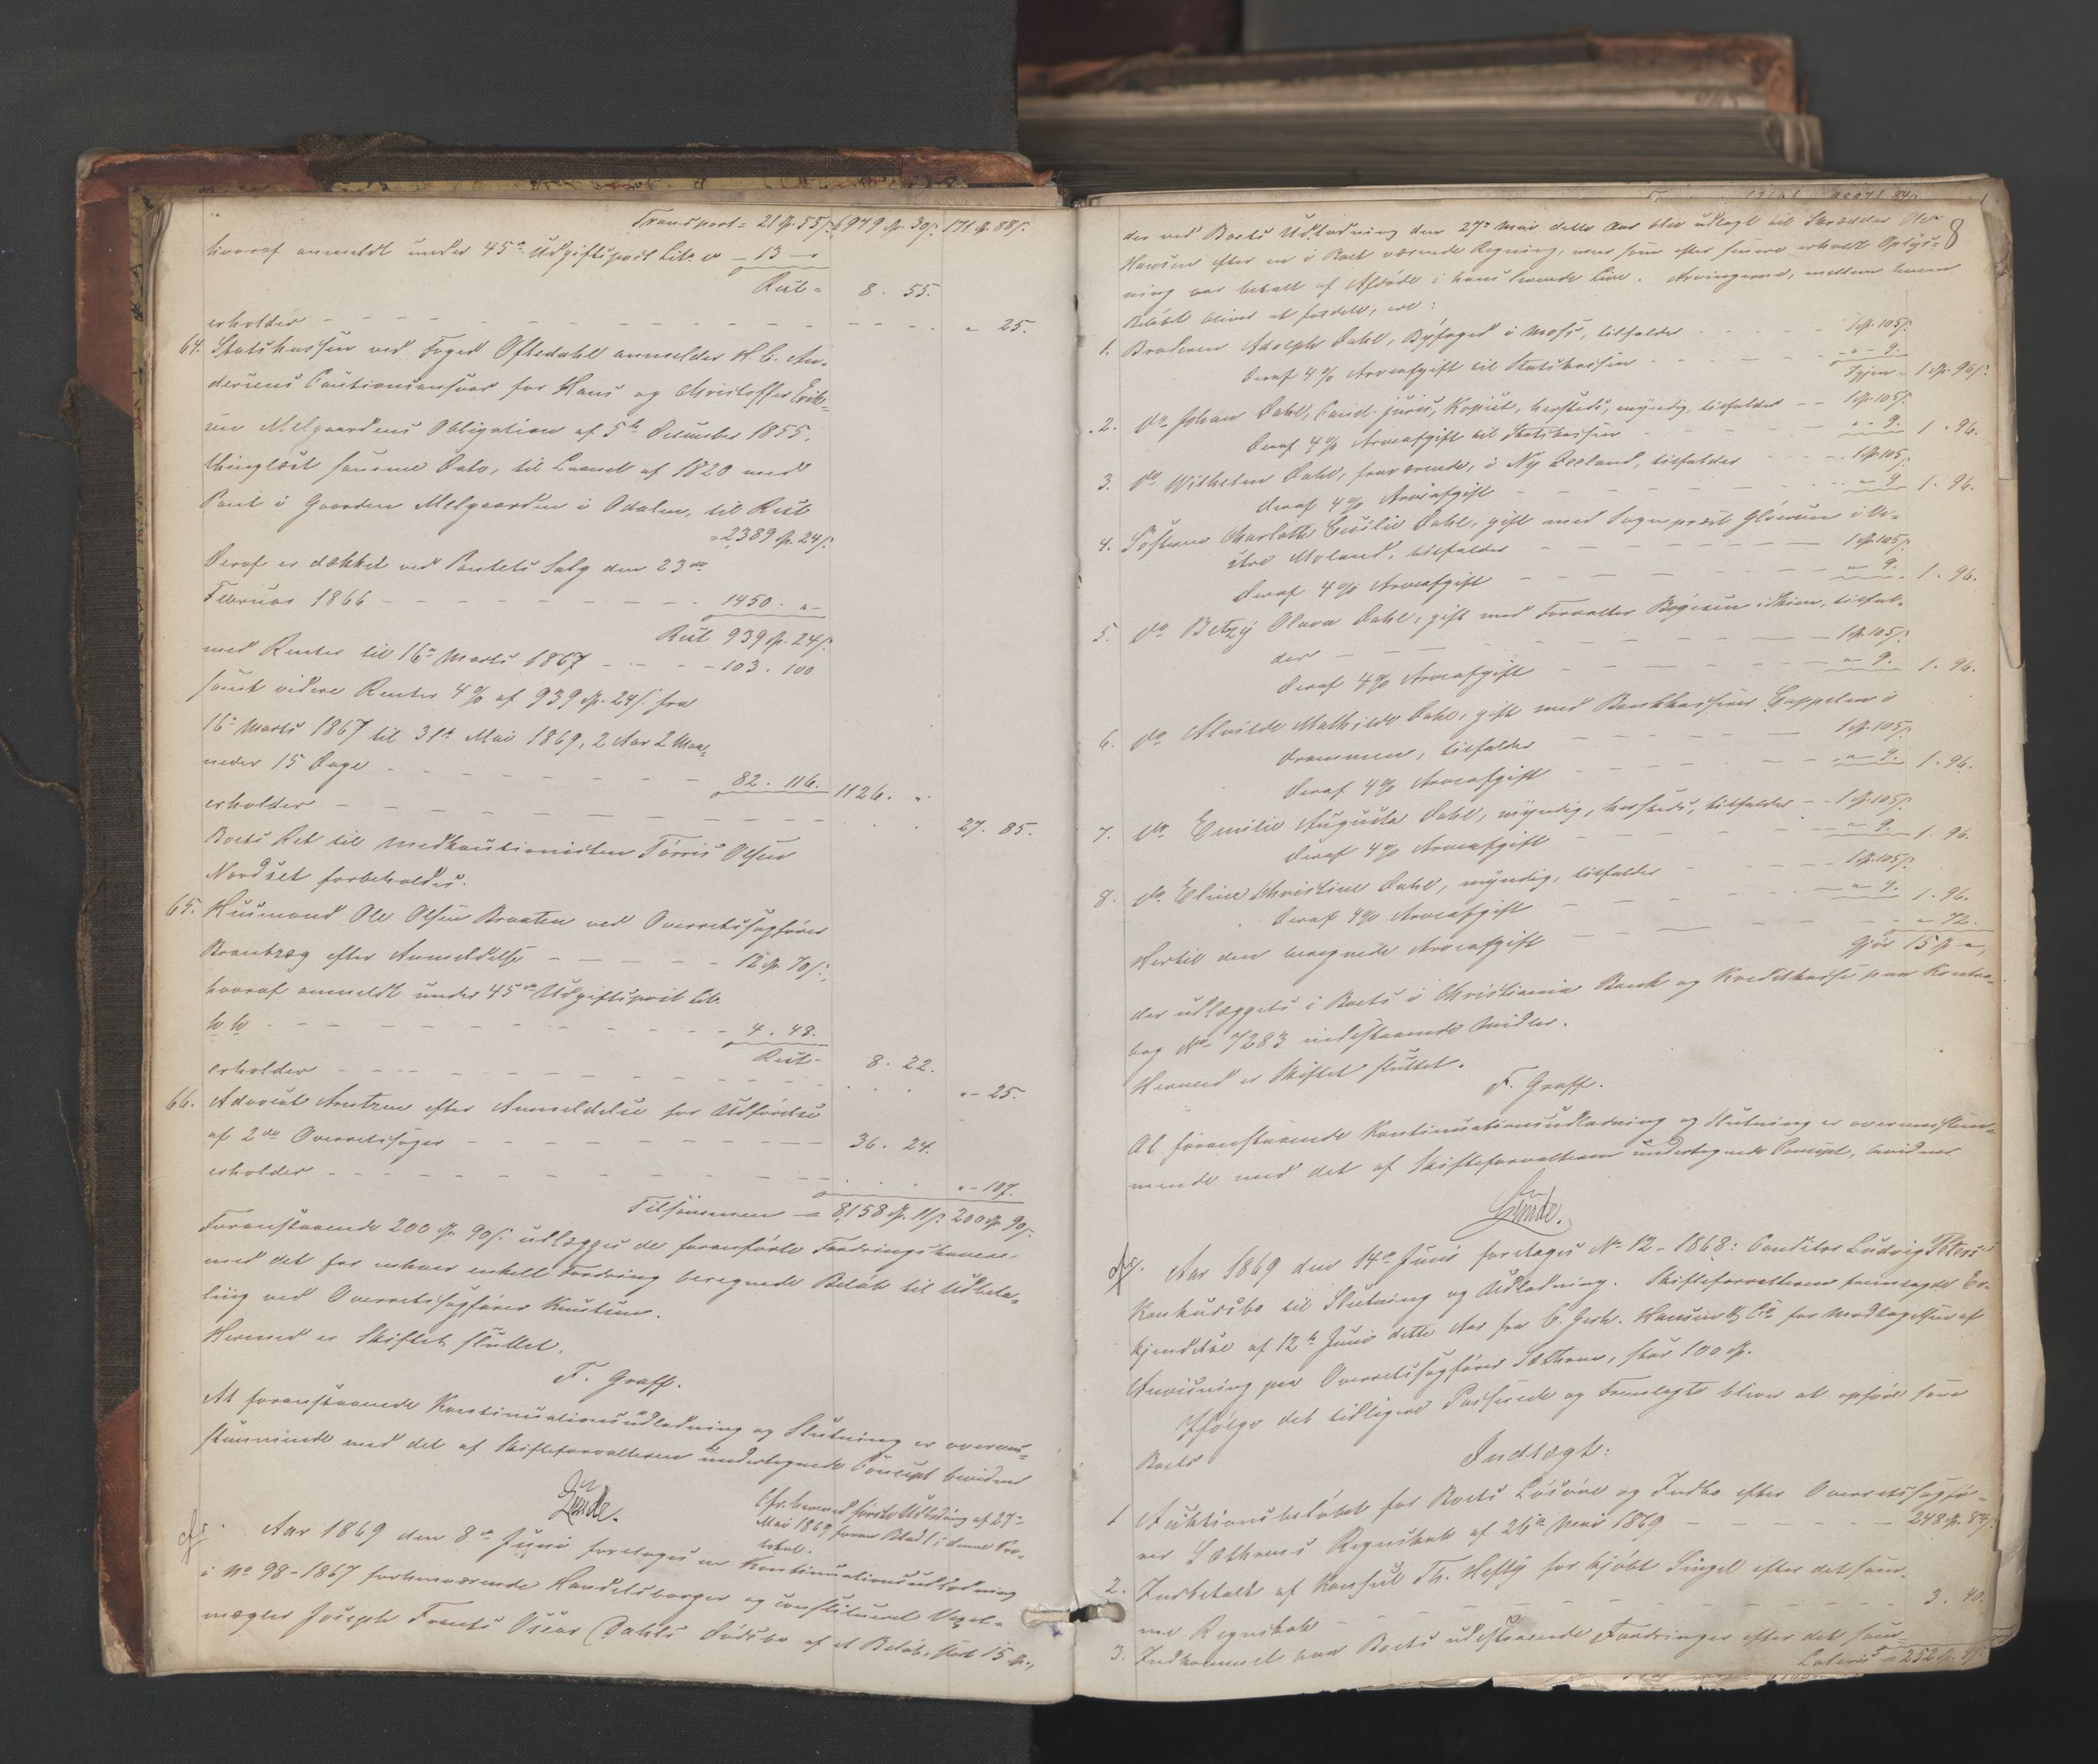 Transport = 21 Sp. 55 s. 6949 Sp. 30 s. 171 Sp. 88 s.
hvoraf anmeldt under 45de Udgiftspost Lit. v — 13 — „
Rest = 8. 55.
erholder — — — „ 25.
64. Statskassen ved Foged Oftedahl anmelder H. C. An-
dersens Cautionsansvar for Hans og Christoffer Erik-
sen Melgaardens Obligation af 5te December 1855,
thinglæst samme Dato, til Laanet af 1820 med
Pant i Gaarden Melgaarden i Odalen, til Rest
= 2389 Sp. 24 s.
Deraf er dækket ved Pantets Salg den 23de
Februar 1866 — — — 1450. „ —
Rest 939 Sp. 24 s.
med Renter til 16de Marts 1867 — — — 103. 100
samt videre Renter 4 % af 939 Sp. 24 s. fra
16de Marts 1867 til 31te Mai 1869, 2 Aar 2 Maa-
neder 15 Dage — — — 82. 116. 1126. „
erholder — — — 27. 85.
Boets Ret til Medkautionisten Tørris Olsen
Nordset forbeholdes.
65. Huusmand Ole Olsen Braaten ved Overretssagfører
efter Anmeldelse — — — 12 Sp. 70 s.
hvoraf anmeldt under 45de Udgiftspost Lit.
— — — 4. 48.
Rest — 8. 22.
erholder — — — „ — 25.
66. Advocat Arntzen efter Anmeldelse for Udførelse
af 2de Overretssager — — — 36. 24.
erholder — — — „ — 107.
Tilsammen = 8,158 Sp. 11 s. 200 Sp. 90 s.
Foranstaaende 200 Sp. 90 s. udlægges de foranførte Fordringshavere
med det for enhver enkelt Fordring beregnede Beløb til Udbeta-
ling ved Overretssagfører Knutsen.
Hermed er Skiftet sluttet.
F. Graff.
At foranstaaende Kontinuationsudlodning og Slutning er overens-
stemmende med det af Skifteforvalteren undertegnede Concept bevidner
Linde.
Cfr. hermed første Udlodning af 27de
Mai 1869 foran Blad 1 i denne Pro-
tokol.
Cfr. Aar 1869 den 8de Juni foretoges en Kontinuationsudlodning
i No 98-1867 forhenværende Handelsborger og constitueret Vexel-
mægler Joseph Frants Oscar Dahls Dødsbo af et Beløb, stort 15 Sp.,
8
der ved Boets Udlodning den 27de Mai dette Aar blev udlagt til Skrædder Ole
Hansen efter en i Boet værende Regning, men som efter senere erholdt Oplys-
ning var betalt af Afdøde i hans levende Live. Arvingerne, mellem hvem
Beløbet bliver at fordele, ere:
1. Broderen Adolph Dahl, Byfoged i Moss, tilfalder — — — 1 Sp. 105 s.
Deraf 4 % Arveafgift til Statskassen — — — „ — 9.
Igjen — 1 Sp. 96 s.
2. Do Johan Dahl, Cand. juris, Kopist, hersteds, myndig, tilfalder — — 1 Sp. 105 s.
Deraf 4 % Arveafgift til Statskassen — — — „ — 9. 1. 96.
3. Do Wilhelm Dahl, fraværende, i Ny Zeeland, tilfalder — — — 1 Sp. 105 s.
Deraf 4 % Arveafgift — — — „ — 9. 1. 96.
4. Søsteren Charlotte Cecilie Dahl, gift med Sogneprest Glørsen i Ve-
stre Moland, tilfalder — — — 1 Sp. 105 s.
Deraf 4 % Arveafgift — — — „ — 9. 1. 96.
5. Do Betzy Olava Dahl, gift med Forvalter Bøyesen i Skien, tilfal-
der — — — 1 Sp. 105 s.
Deraf 4 % Arveafgift — — — „ — 9. 1. 96.
6. Do Alvilde Mathilde Dahl, gift med Bankkasserer Cappelen i
Drammen, tilfalder — — — 1 Sp. 105 s.
Deraf 4 % Arveafgift — — — „ — 9. 1. 96.
7. Do Emilie Augusta Dahl, myndig, hersteds, tilfalder — — 1 Sp. 105 s.
Deraf 4 % Arveafgift — — — „ — 9. 1. 96.
8. Do Eline Christine Dahl, myndig, tilfalder — — — 1 Sp. 105 s.
Deraf 4 % Arveafgift — — — „ — 9. 1. 96.
Hertil den beregnede Arveafgift — — — „ — 72.
Gjør 15 Sp. „,
der udlægges i Boets i Christiania Bank og Kreditkasse paa Kontra-
bog No 7283 indestaaende Midler.
Hermed er Skiftet sluttet.
F. Graff.
At foranstaaende Kontinuationsudlodning og Slutning er overensstem-
mende med det af Skifteforvalteren undertegnede Concept, bevidner
Linde.
Cfr. Aar 1869 den 14de Juni foretoges No 12-1868: Conditor Ludvig Peters's
Konkursbo til Slutning og Udlodning. Skifteforvalteren fremlagde Er-
kjendelse af 12te Juni dette Aar fra C. Gerh. Hansen & Co for Modtagelsen af
Anvisning paa Overretssagfører Sæthren, stor 100 Sp.
Ifølge det tidligere Passerede og Fremlagte bliver at opføre som
Boets
Indtægt:
1. Auktionsbeløbet for Boets Løsøre og Indbo efter Overretssagfø-
rer Sæthrens Regnskab af 26de Mai 1869 — — — 248 Sp. 84 s.
2. Indbetalt af Konsul Th. Hefty for kjøbt Singel efter det sam-
me Regnskab — — — 3. 40.
3. Indkommet paa Boets udestaaende Fordringer efter det sam-
Lateris = 252 Sp. 4 s.